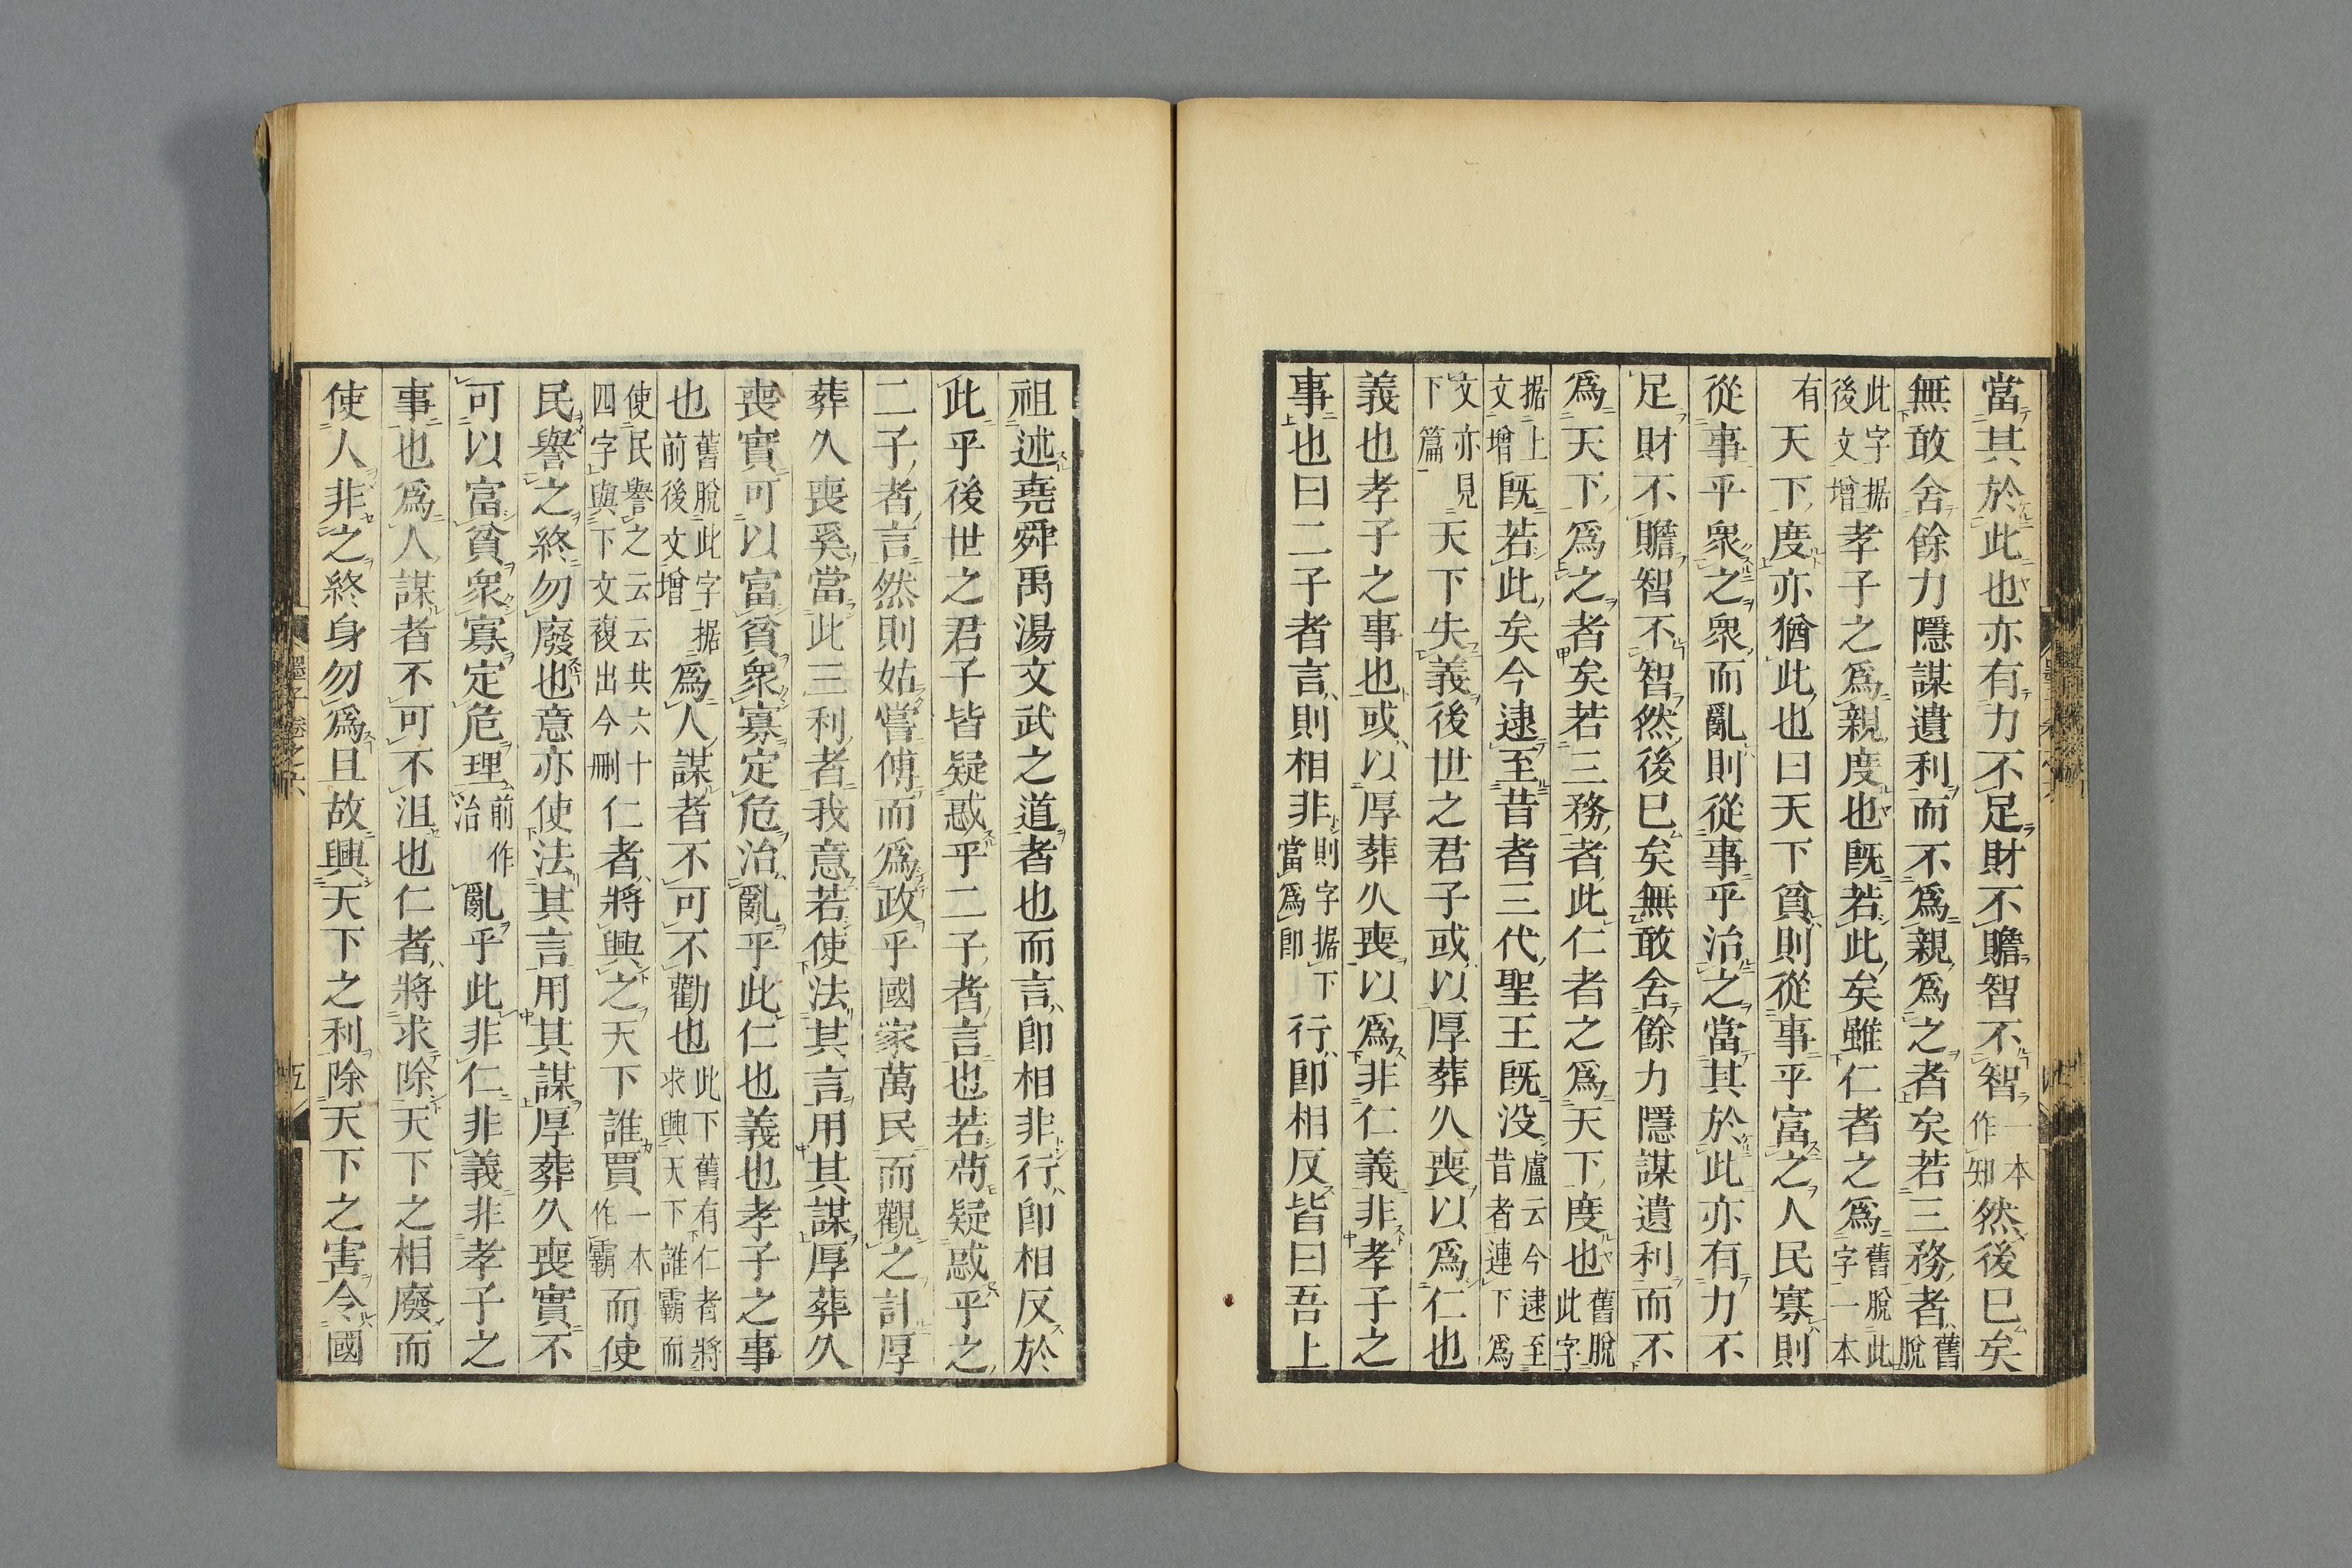 當其於此也亦有力不足財不贍智不智一本作知然後巳矣
無敢舍餘力隱謀遺利而不爲親爲之者矣若三務者舊脫
此字据後文增孝子之爲親度也既若此矣雖仁者之爲舊脫此字一本
有天下度亦猶此也曰天下貧則從事乎富之人民寡則
從事乎衆之衆而亂則從事乎治之當其於此亦有力不
足財不贍智不智然後巳矣無敢舍餘力隱謀遺利而不
爲天下爲之者矣若三務者此仁者之爲天下度也舊脫此字
据上文增既若此矣今逮至昔者三代聖王既没盧云今逮至昔者連下爲
文亦見下篇天下失義後世之君子或以厚葬久喪以爲仁也
義也孝子之事也或以厚葬久喪以爲非仁義非孝子之
事也曰二子者言則相非則字据下當爲卽行卽相反皆曰吾上
祖述堯舜禹湯文武之道者也而言卽相非行卽相反於
此乎後世之君子皆疑惑乎二子者言也若苟疑惑乎之
二子者言然則姑嘗傅而爲政乎國家萬民而觀之計厚
葬久喪奚當此三利者我意若使法其言用其謀厚葬久
喪實可以富貧衆寡定危治亂乎此仁也義也孝子之事
也舊脫此字据前後文增爲人謀者不可不勸也此下舊有仁者將求興天下誰霸而
使民譽之云云共六十四字與下文複出今刪仁者將興之天下誰賈一本作霸而使
民譽之終勿廢也意亦使法其言用其謀厚葬久喪實不
可以富貧衆寡定危理前作治亂乎此非仁非義非孝子之
事也爲人謀者不可不沮也仁者將求除天下之相廢而
使人非之終身勿爲且故興天下之利除天下之害令國
墨子卷之六
五